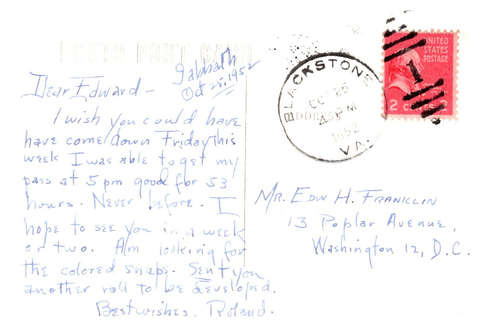 PHOTO POST CARD
Sabbath
Oct 25, 1952
Dear Edward -
I wish you could have
have come down Friday this
week I was able to get my
pass at 5 pm good for 53
hours. Never before. I
hope to see you in a week
or two. Am looking for
the colored snaps. Sent you
another roll to be developed.
Best wishes. Roland.
BLACKSTONE
OCT 26
4 PM
1952
VA.
UNITED
STATES
POSTAGE
2 CENTS
1
Mr. Edw H. Franklin
13 Poplar Avenue,
Washington 12, D.C.